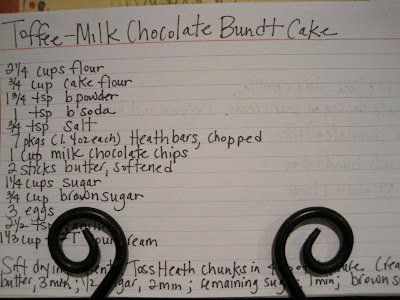 Toffee-Milk Chocolate Bundt Cake
2 1/4 cups flour
3/4 cup cake flour
1 3/4 tsp b powder
1 tsp b soda
3/4 tsp salt
7 pkgs (1.4oz each) Heath bars, chopped
1 cup milk chocolate chips
2 sticks butter, softened
1 1/4 cups sugar
3/4 cup brown sugar
3 eggs
2 1/2 tsp
1 1/3 cup cream
Sift dry Toss Heath chunks in
butter, 3 min; 1/2 sugar, 2 min; remaining sugar 1 min; brown